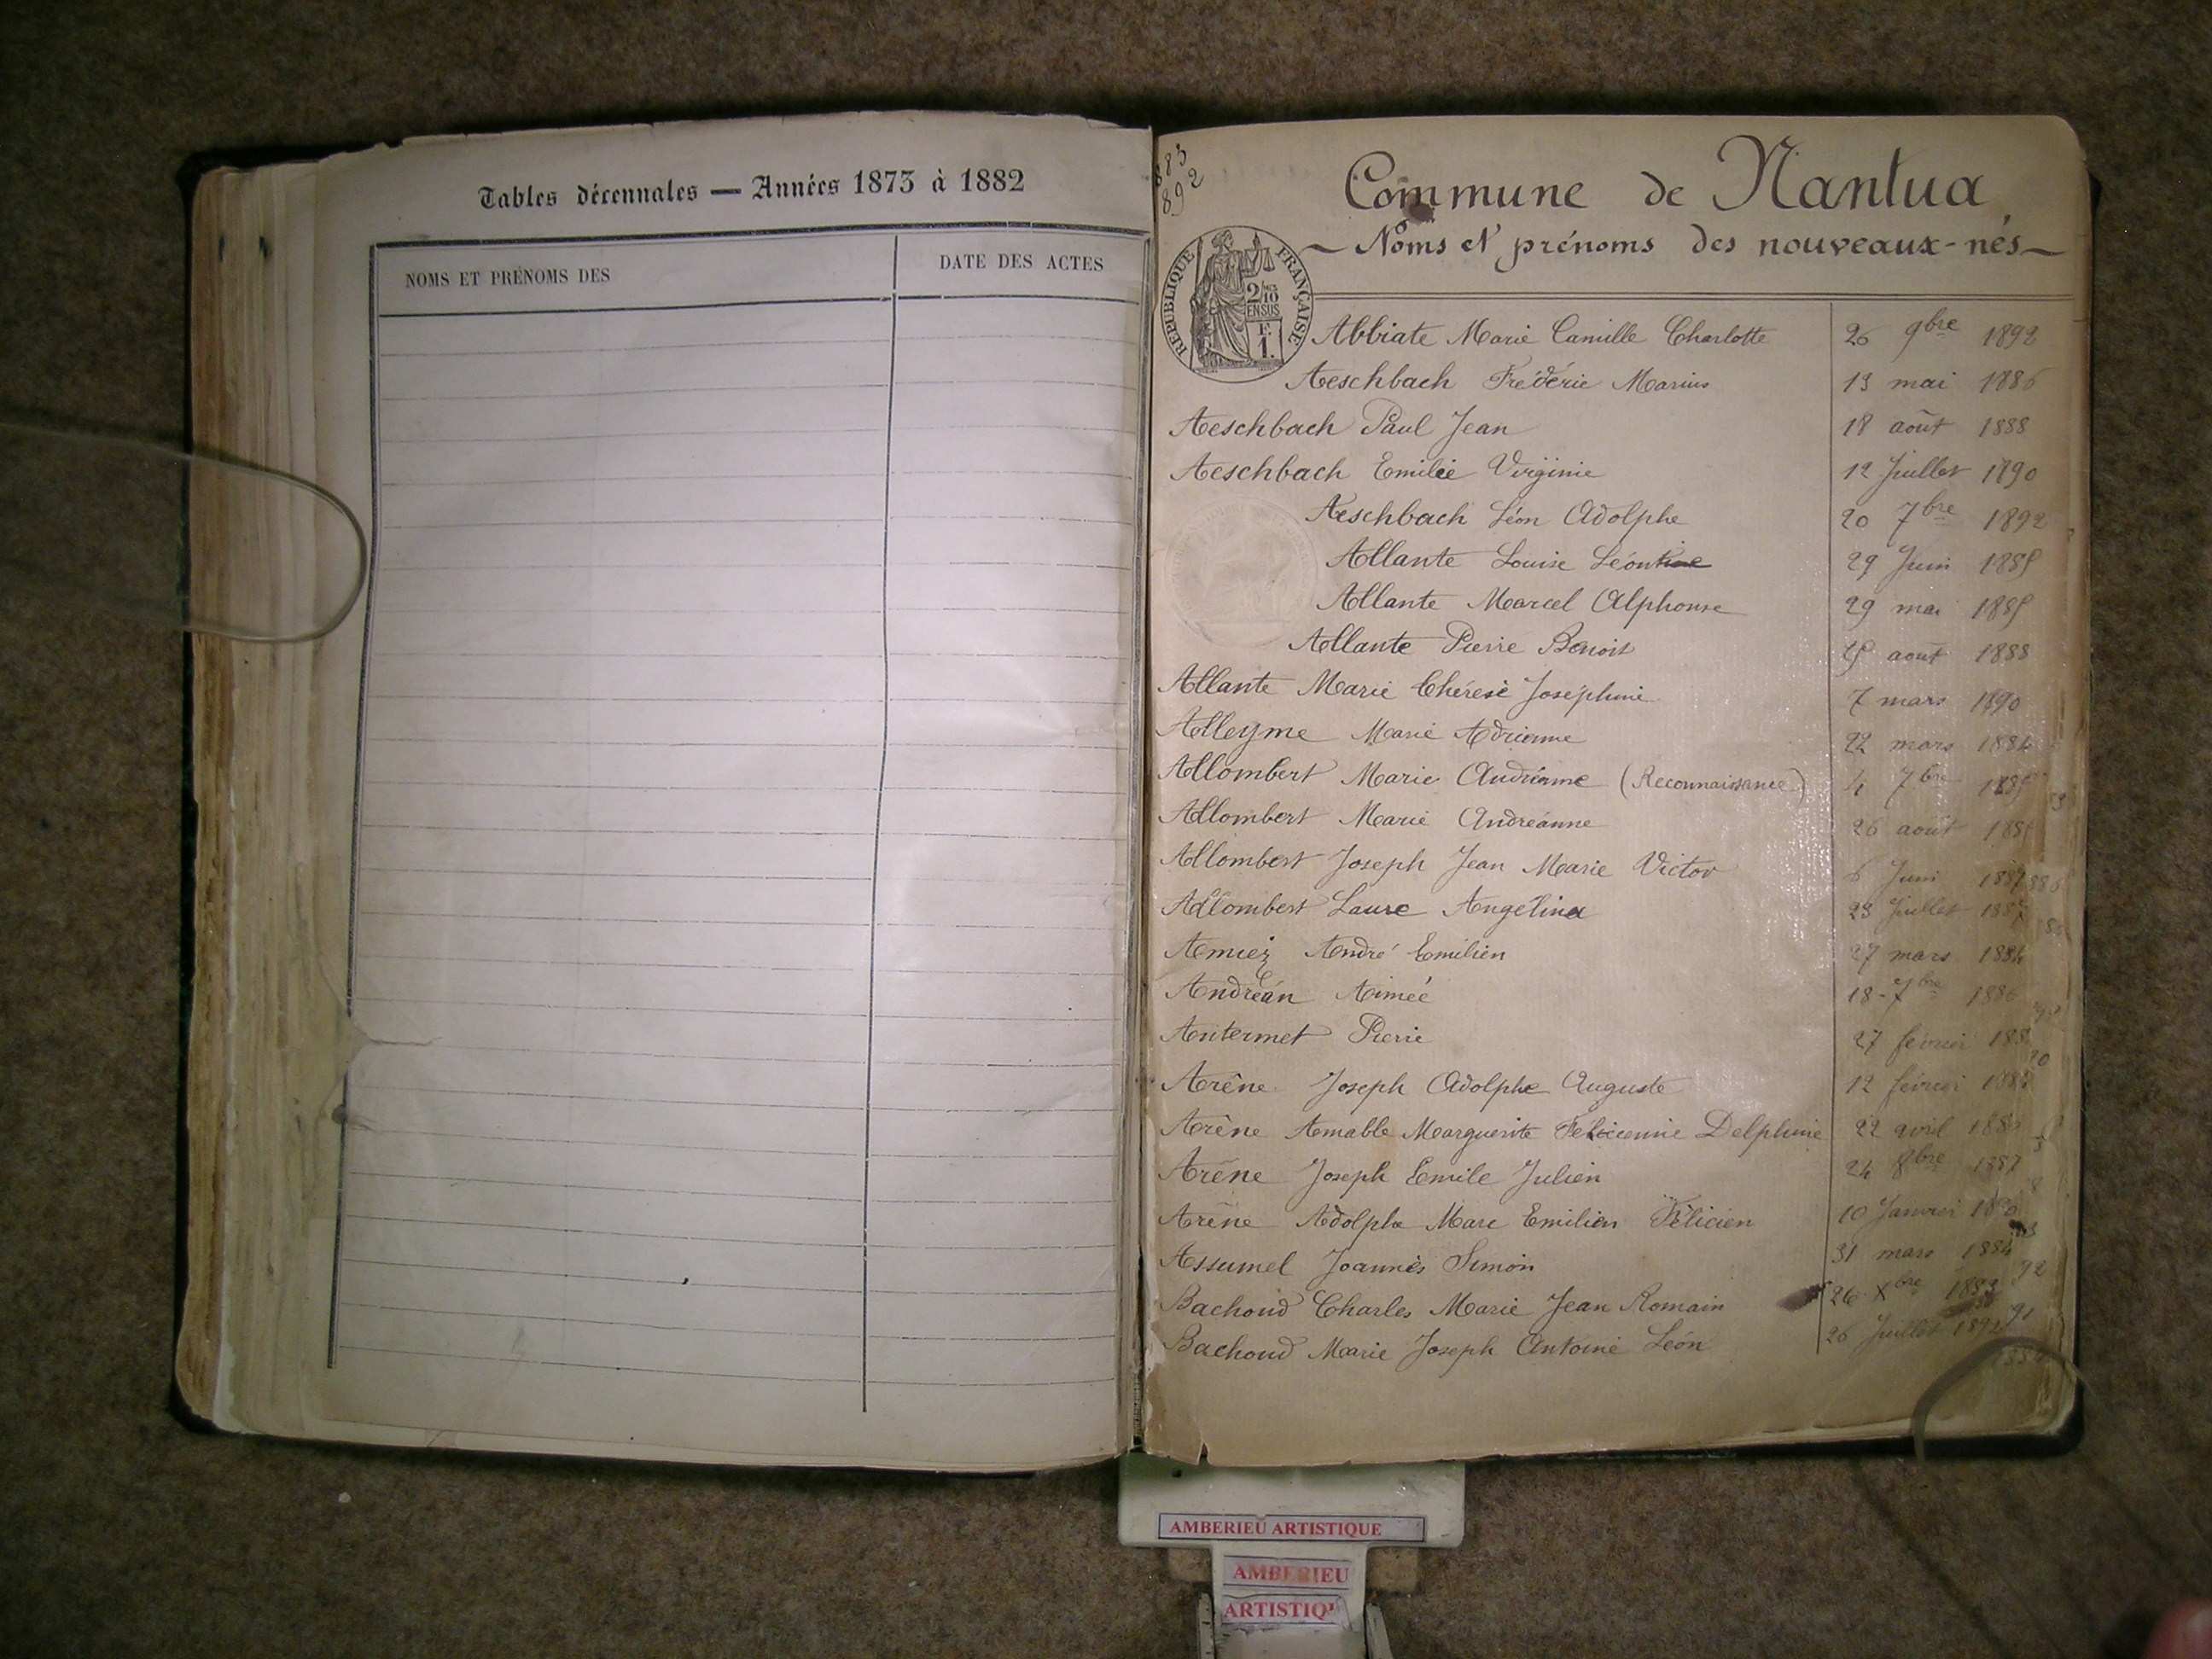 Tables décennales — Années 1873 à 1882
NOMS ET PRÉNOMS DES
DATE DES ACTES
883
892
Commune de Nantua
Noms et prénoms des nouveaux-nés
RÉPUBLIQUE FRANÇAISE
2/10
EN SUS
F.
1.
Abbiate Marie Camille Charlotte 26 9bre 1892
Aeschbach Frédéric Marius 13 mai 1886
Aeschbach Paul Jean 18 août 1888
Aeschbach Emilie Virginie 12 Juillet 1890
Aeschbach Léon Adolphe 20 7bre 1892
Allante Louise Léontine 29 Juin 1885
Allante Marcel Alphonse 29 mai 1885
Allante Pierre Benoit août 1888
Allante Marie Thérèse Joséphine 7 mars 1890
Alleyme Marie Adrienne 22 mars 1884
Allombert Marie Audrianne (Reconnaissance) 4 7bre 1885
Allombert Marie Andréanne 26 août 1885
Allombert Joseph Jean Marie Victor 6 Juin
Allombert Laure Angélina 23 Juillet 1887
Amiez André Emilien 27 mars 1884
Andréan Aimée 18-7bre 1886
Antermet Pierre 27 février
Arêne Joseph Adolphe Auguste 12 février
Arêne Amable Marguerite Félicienne Delphine 22 avril
Arêne Joseph Emile Julien 24 8bre 1887
Arêne Adolphe Marc Emilien Félicien 10 Janvier
Assumel Joannès Simon 31 mars 1884
Bachoud Charles Marie Jean Romain 26 Xbre 1883
Bachoud Marie Joseph Antoine Léon 26 Juillet
AMBERIEU ARTISTIQUE
AMBERIEU
ARTISTIQU